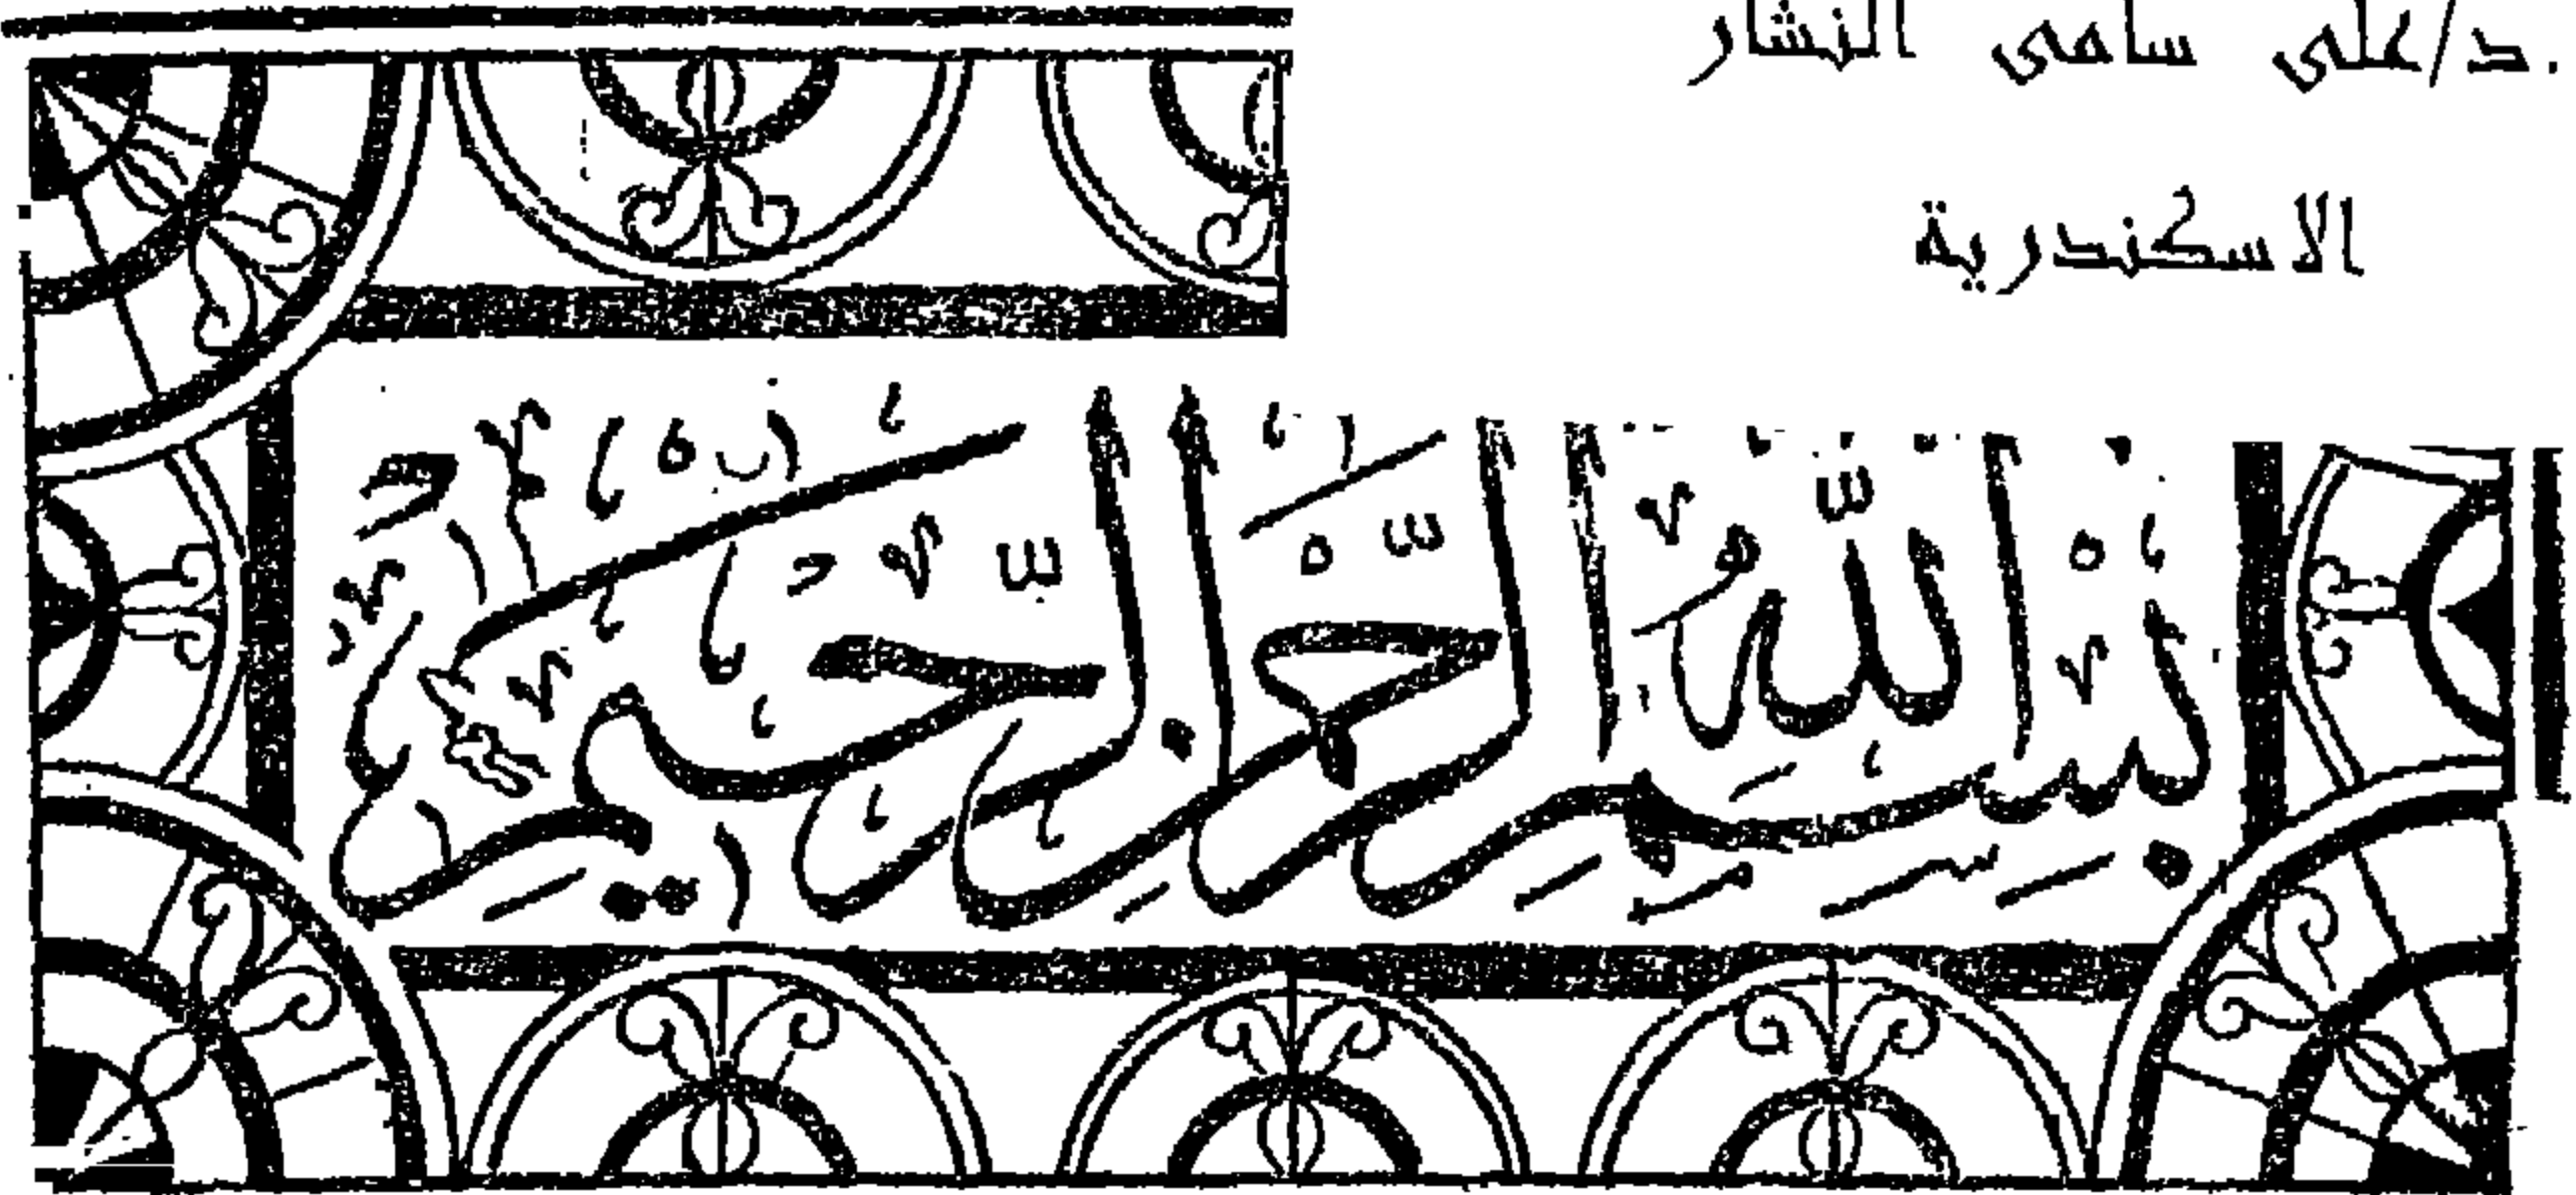 د/على سامى النشار.
الاسكندرية
بسم الله الرحمن الرحيم